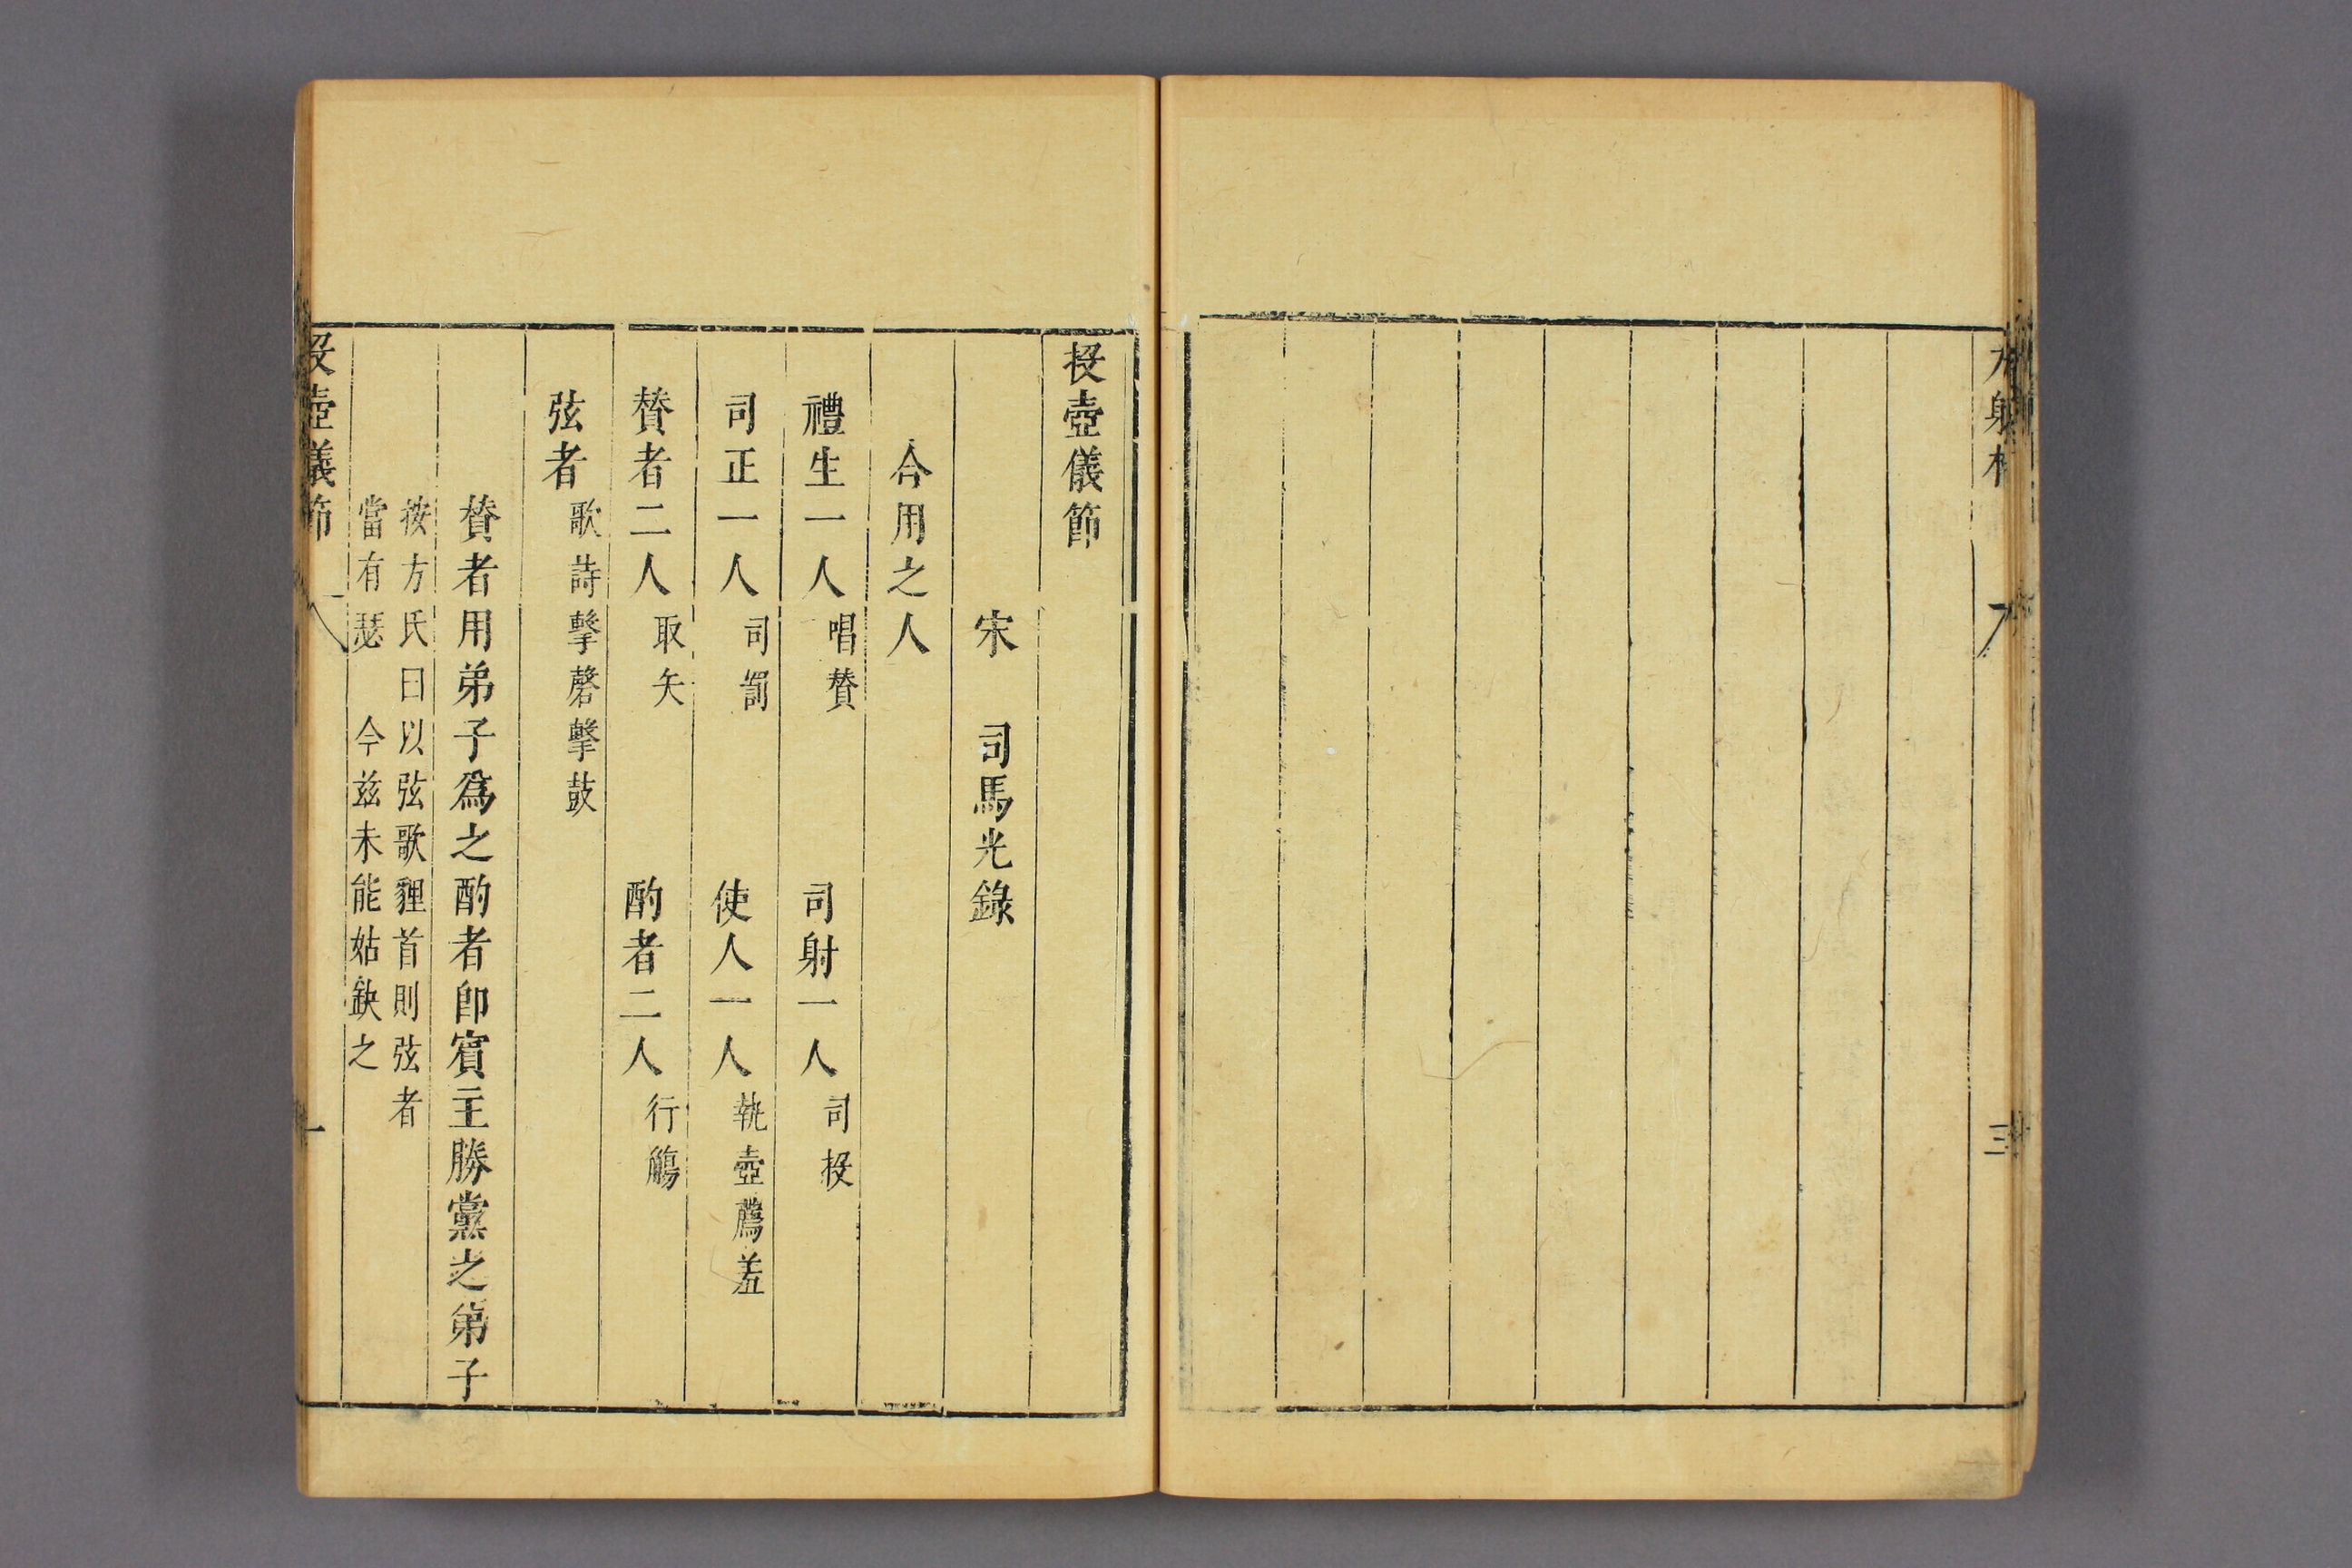 三
投壺儀節
宋　司馬光錄
合用之人
禮生一人唱贊　司射一人司投
司正一人司罰　使人一人執壺薦羞
贊者二人取矢　酌者二人行觴
弦者歌詩擊磬擊鼓
贊者用弟子爲之酌者卽賓主勝黨之弟子
按方氏曰以弦歌貍首則弦者
當有瑟　今兹未能姑缺之
投壺儀節
一